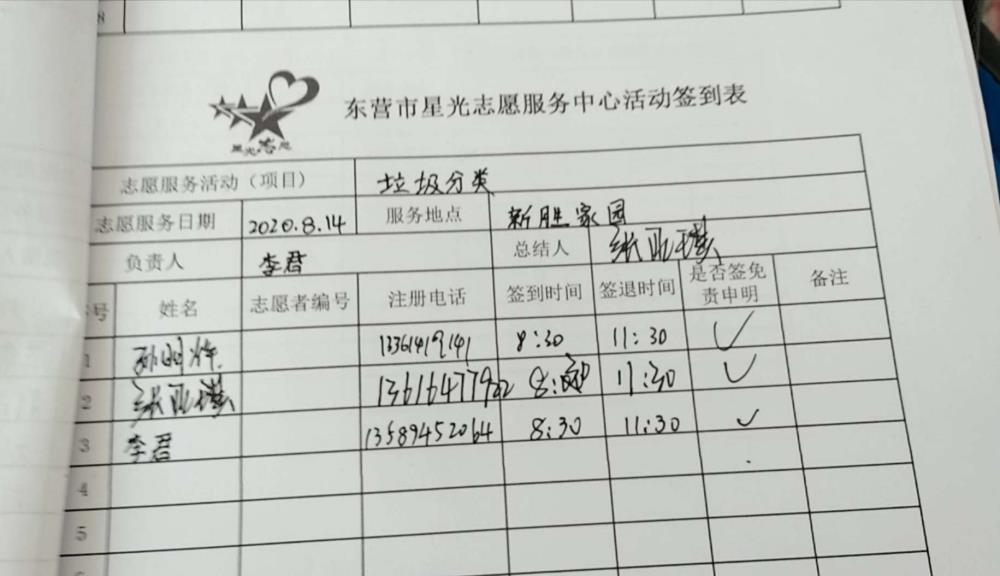 8
星光志愿
东营市星光志愿服务中心活动签到表
志愿服务活动（项目） 垃圾分类
志愿服务日期 2020.8.14 服务地点 新胜家园
负责人 李君 总结人
号 姓名 志愿者编号 注册电话 签到时间 签退时间 是否签免责申明 备注
1 13361419141 8:30 11:30 ✓
2 8: 11:30 ✓
3 李君 13589452064 8:30 11:30 ✓
4
5